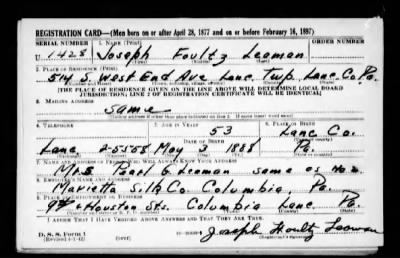 REGISTRATION CARD—(Men born on or after April 28, 1877 and on or before February 16, 1897)
SERIAL NUMBER 1. NAME (Print) ORDER NUMBER
U 1428 Joseph Foultz Leaman
2. PLACE OF RESIDENCE (Print)
514 S. West End Ave Lanc. Twp. Lanc. Co Pa.
[THE PLACE OF RESIDENCE GIVEN ON THE LINE ABOVE WILL DETERMINE LOCAL BOARD
JURISDICTION; LINE 2 OF REGISTRATION CERTIFICATE WILL BE IDENTICAL]
3. MAILING ADDRESS
Same
4. TELEPHONE 5. AGE IN YEARS 6. PLACE OF BIRTH
53 Lanc Co.
DATE OF BIRTH
Lanc. 2-5558 May 3 1888 Pa.
7. NAME AND ADDRESS OF PERSON WHO WILL ALWAYS KNOW YOUR ADDRESS
Mrs. Pearl G. Leaman same as No. 2.
8. EMPLOYER'S NAME AND ADDRESS
Marietta Silk Co. Columbia, Pa.
9. PLACE OF EMPLOYMENT OR BUSINESS
9th & Houston Sts. Columbia Lanc. Pa.
I AFFIRM THAT I HAVE VERIFIED ABOVE ANSWERS AND THAT THEY ARE TRUE.
D. S. S. Form 1
(Revised 4-1-42) (over)
Joseph Foultz Leaman